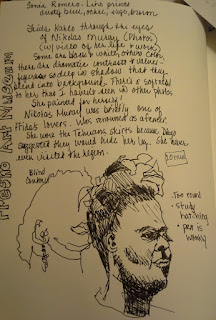 Sonia Romero: Lino prints
dusty blue, ochre, sage, brown
Frida Kahlo through the eyes
of Nikolas Muray (Photos
(w/ video of her life & work)
Some are black & white, others color
there. The dramatic contrasts & values -
figures so deep in shadow that they
blend into background. There's a sorrow
to her that I haven't seen in other photos
She painted for herself!
Nikolas Muray was briefly one of
Frida's lovers. Was renowned as a fencer
She wore the Tehuana skirts because Diego
suggested they would hide her leg. She never
even visited the region.
Fresno Art Museum
Blind
Contour
Too round
• study
hatching
• pen is
wonky